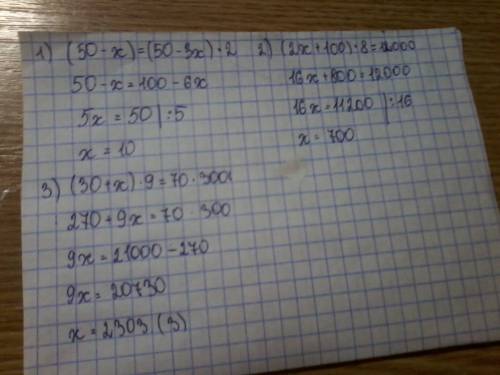 1) (50 - x) = (50 - 3x) · 2
50 - x = 100 - 6x
5x = 50 | : 5
x = 10
2) (2x + 100) · 8 = 12000
16x + 800 = 12000
16x = 11200 | : 16
x = 700
3) (30 + x) · 9 = 70 · 300
270 + 9x = 70 · 300
9x = 21000 - 270
9x = 20730
x = 2303, (3)